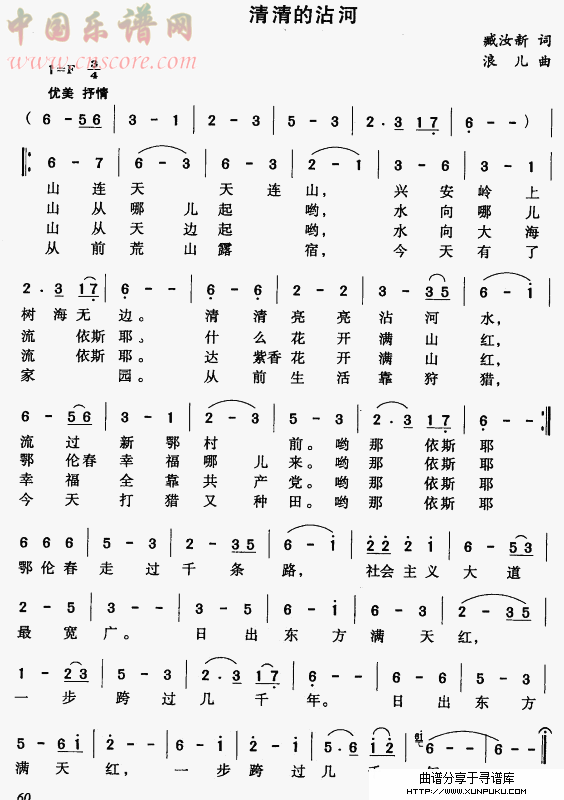 清清的沾河
中国乐谱网
www.cnscore.com
臧汝新 词
浪儿 曲
1=F 3/4
优美 抒情
( 6 - 56 | 3 - 1 | 2 - 3 | 5 - 3 | 2· 3 17 | 6 - - )
6 - 7 | 6 - 3 | 6 - 3 | 2 - 1 | 3 - 6 | 3 - 1
山 连 天 天 连 山, 兴 安 岭 上
山 从 哪 儿 起 哟, 水 向 哪 儿
山 从 天 边 起 哟, 水 向 大 海
从 前 荒 山 露 宿, 今 天 有 了
2· 3 17 | 6 - - | 6 - 6 | 2 - 2 | 3 - 35 | 6 - i
树 海 无 边。 清 清 亮 亮 沾 河 水,
流 依斯 耶、 什 么 花 开 满 山 红,
流 依斯 耶。 达 紫香 花 开 满 山 红,
家 园。 从 前 生 活 靠 狩 猎,
6 - 56 | 3 - 1 | 2 - 3 | 5 - 3 | 2· 3 17 | 6 - -
流 过 新 鄂 村 前。哟 那 依 斯 耶
鄂 伦春 幸 福 哪 儿 来。哟 那 依 斯 耶
幸 福 全 靠 共 产 党。哟 那 依 斯 耶
今 天 打 猎 又 种 田。哟 那 依 斯 耶
6 6 6 | 5 - 3 | 2· 3 35 | 6 - i | 22 2 i | 6 - 53
鄂 伦 春 走 过 千 条 路, 社会 主 义 大 道
2 - 5 | 3 - - | 3 - 5 | 6 - i | 6 - i | 2 - 35
最 宽 广。 日 出 东 方 满 天 红,
1 - 23 | 5 - 3 | 2· 3 17 | 6 - - | 6 - 6 | 5 - 3
一 步 跨 过 几 千 年。 日 出 东 方
5 - 6i | 2 - - | 6 - i | 2 - 3 | 5· 6 i2 | 6 - -
满 天 红, 一 步 跨 过 几
60
曲谱分享于寻谱库
WWW.XUNPUKU.COM